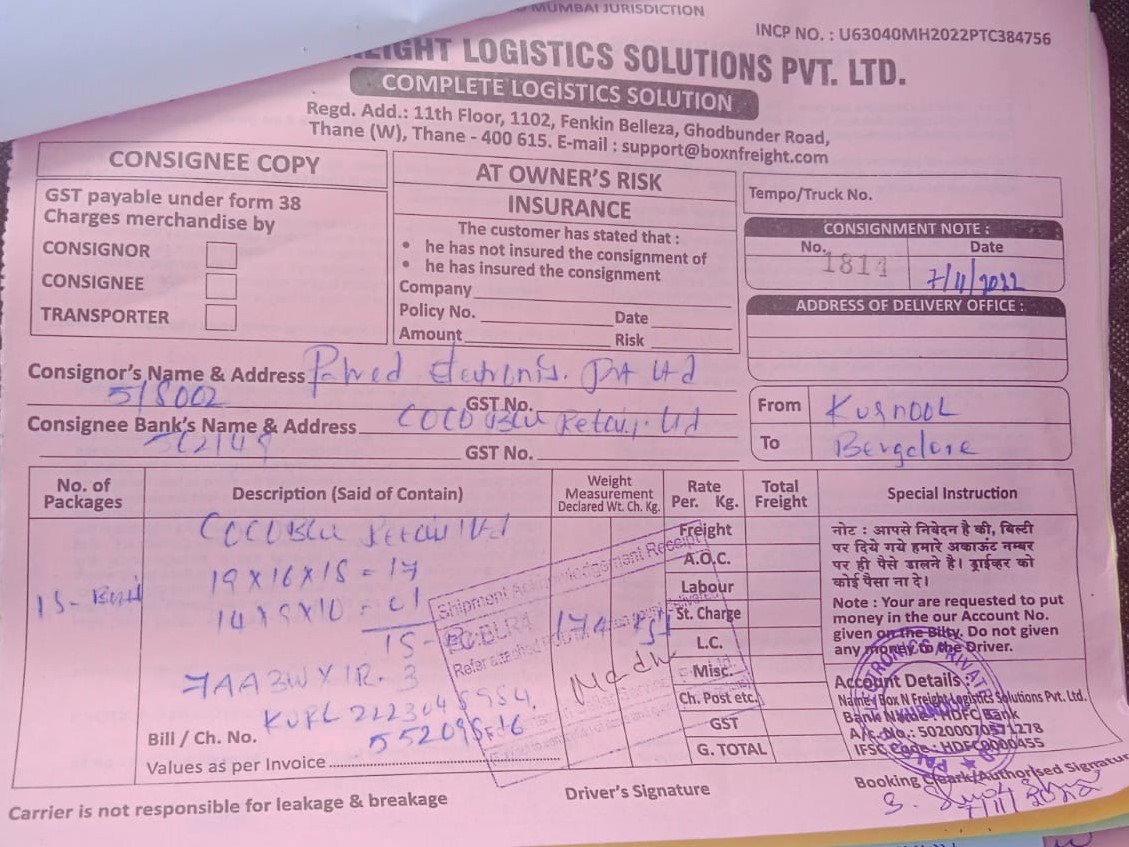 MUMBAI JURISDICTION
INCP NO. : U63040MH2022PTC384756
EIGHT LOGISTICS SOLUTIONS PVT. LTD.
COMPLETE LOGISTICS SOLUTION
Regd. Add.: 11th Floor, 1102, Fenkin Belleza, Ghodbunder Road,
Thane (W), Thane - 400 615. E-mail : support@boxnfreight.com
CONSIGNEE COPY
GST payable under form 38
Charges merchandise by
CONSIGNOR
CONSIGNEE
TRANSPORTER
AT OWNER'S RISK
INSURANCE
The customer has stated that :
• he has not insured the consignment of
• he has insured the consignment
Company
Policy No. Date
Amount Risk
Tempo/Truck No.
CONSIGNMENT NOTE :
No. Date
1811 7/11/2022
ADDRESS OF DELIVERY OFFICE :
Consignor's Name & Address Pvt Ltd
518002 GST No.
Consignee Bank's Name & Address Ltd
GST No.
From Kurnool
To Bangalore
No. of Packages
Description (Said of Contain)
Weight Measurement Declared Wt. Ch. Kg.
Rate Per. Kg.
Total Freight
Special Instruction
19 X 16 X 15 = 17
= 01
Shipment Acknowledgement Receipt
Refer attached
Bill / Ch. No.
Values as per Invoice
Freight
A.O.C.
Labour
St. Charge
L.C.
Misc.
Ch. Post etc.
GST
G. TOTAL
नोट : आपसे निवेदन है की, बिल्टी
पर दिये गये हमारे अकाऊंट नम्बर
पर ही पैसे डालने है। ड्राईव्हर को
कोई पैसा ना दे।
Note : Your are requested to put
money in the our Account No.
given on the Bilty. Do not given
any money to the Driver.
Account Details :
Name : Box N Freight Logistics Solutions Pvt. Ltd.
Bank Name : HDFC Bank
A/c. No. : 50200070571278
IFSC Code : HDFC0000455
Carrier is not responsible for leakage & breakage
Driver's Signature
Booking Cleark/Authorised Signatur
7/11/2022